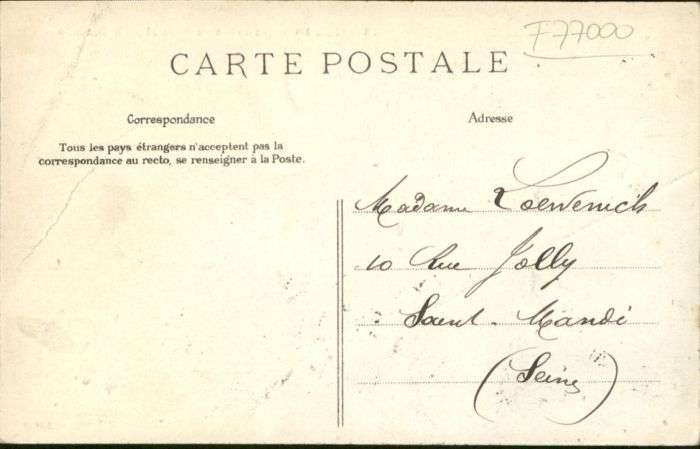 F77000
CARTE POSTALE
Correspondance
Tous les pays étrangers n'acceptent pas la
correspondance au recto, se renseigner à la Poste.
Adresse
Madame Loewenich
10 Rue Jolly
Saint-Mandé
(Seine)